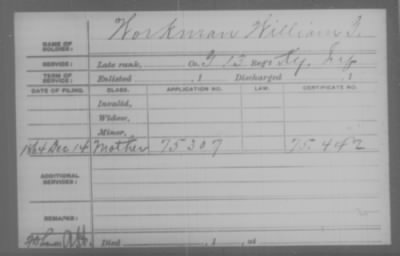 Workman William
NAME OF SOLDIER:
SERVICE: Late rank, Co. G 13 Reg't Ky. Inf
TERM OF SERVICE: Enlisted , 1 Discharged , 1
DATE OF FILING. CLASS. APPLICATION NO. LAW. CERTIFICATE NO.
Invalid,
Widow,
Minor,
1864 Dec 14 Mother 75307 75.442
ADDITIONAL SERVICES:
REMARKS:
Died , 1 , at